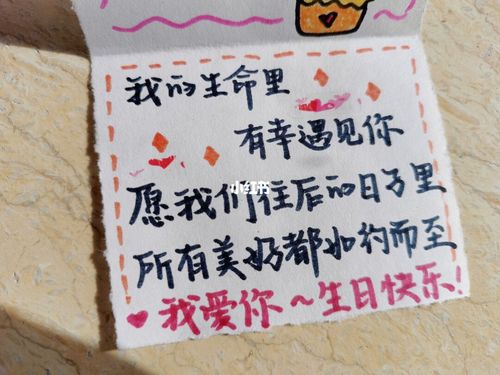 我的生命里
有幸遇见你
小红书
愿我们往后的日子里
所有美好都如约而至
我爱你～生日快乐!